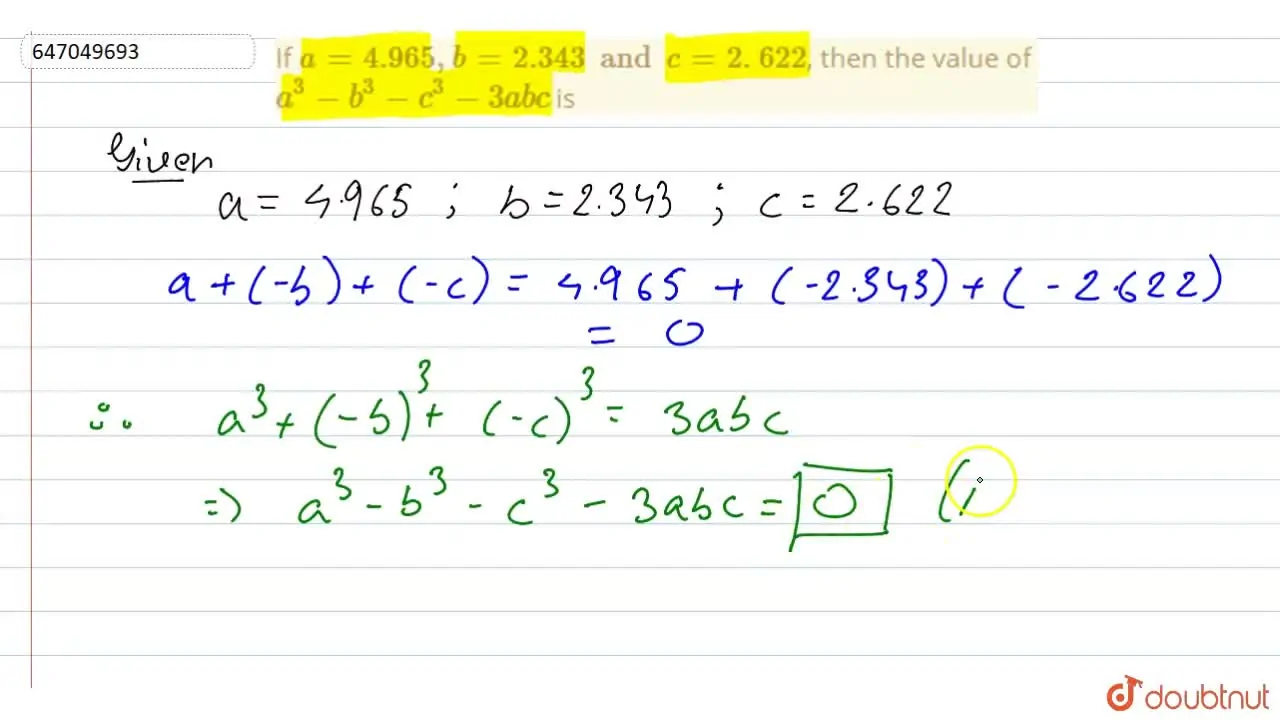 647049693
If a = 4.965, b = 2.343 and c = 2. 622, then the value of
a³ − b³ − c³ − 3abc is
Given
a = 4.965 ; b = 2.343 ; c = 2.622
a + (-b) + (-c) = 4.965 + (-2.343) + (-2.622)
= 0
∴ a³ + (-b)³ + (-c)³ = 3abc
=> a³ - b³ - c³ - 3abc = 0 (
doubtnut